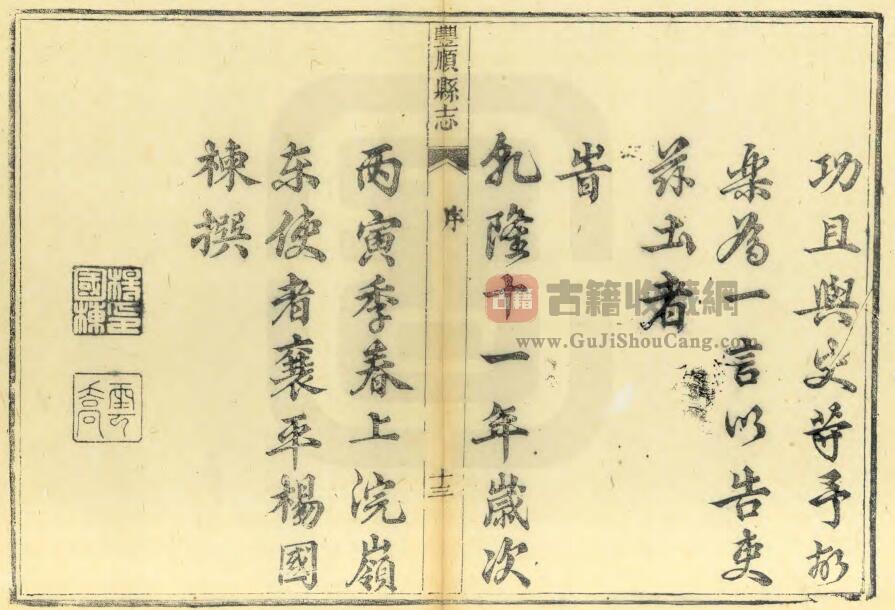 功且與史等予故
樂為一言以告吏
茲土者
旹
乾隆十一年歲次
丙寅季春上浣嶺
東使者襄平楊國
棟撰
豐順縣志
序
十三
楊國棟印
雲喬
古籍
古籍收藏網
www.GuJiShouCang.com